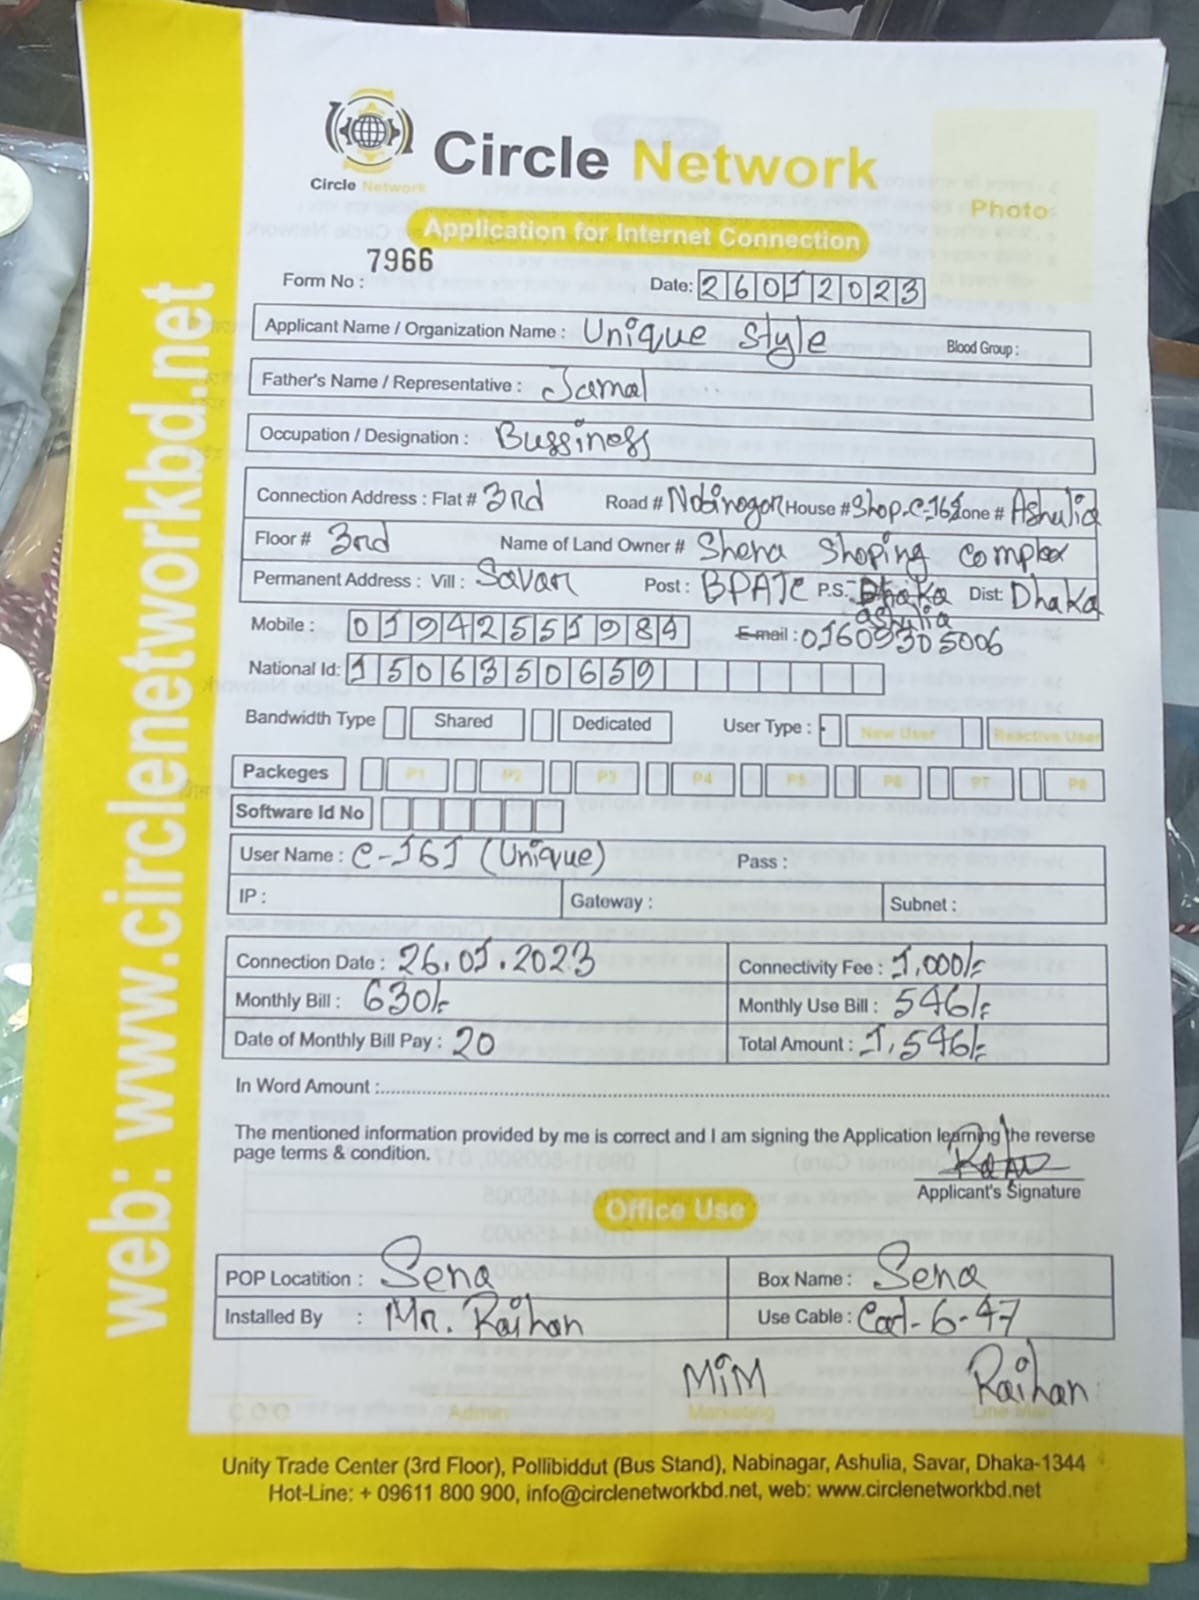 web: www.circlenetworkbd.net
Circle Network
Circle Network
Photo
Application for Internet Connection
Form No : 7966
Date: 26012023
Applicant Name / Organization Name : Unique Style
Blood Group :
Father's Name / Representative : Jamal
Occupation / Designation : Bussiness
Connection Address : Flat # 3rd Road # Nobinogor House # Shop-C-161 Zone # Ashulia
Floor # 3rd Name of Land Owner # Shena Shoping Complex
Permanent Address : Vill : Savar Post : BPATC P.S.: Dhaka Ashulia Dist: Dhaka
Mobile : 01942551984 E-mail : 01609305006
National Id: 1506350659
Bandwidth Type Shared Dedicated User Type : New User Reactive User
Packeges P1 P2 P3 P4 P5 P6 P7 P8
Software Id No
User Name : C-161 (Unique) Pass :
IP : Gateway : Subnet :
Connection Date : 26.01.2023 Connectivity Fee : 1,000/-
Monthly Bill : 630/- Monthly Use Bill : 546/-
Date of Monthly Bill Pay : 20 Total Amount : 1,546/-
In Word Amount :
The mentioned information provided by me is correct and I am signing the Application learning the reverse
page terms & condition.
Applicant's Signature
Office Use
POP Locatition : Sena Box Name : Sena
Installed By : Mr. Raihan Use Cable : Cat-6-47
MiM Raihan
C.O.O Admin Marketing Line Man
Unity Trade Center (3rd Floor), Pollibiddut (Bus Stand), Nabinagar, Ashulia, Savar, Dhaka-1344
Hot-Line: + 09611 800 900, info@circlenetworkbd.net, web: www.circlenetworkbd.net